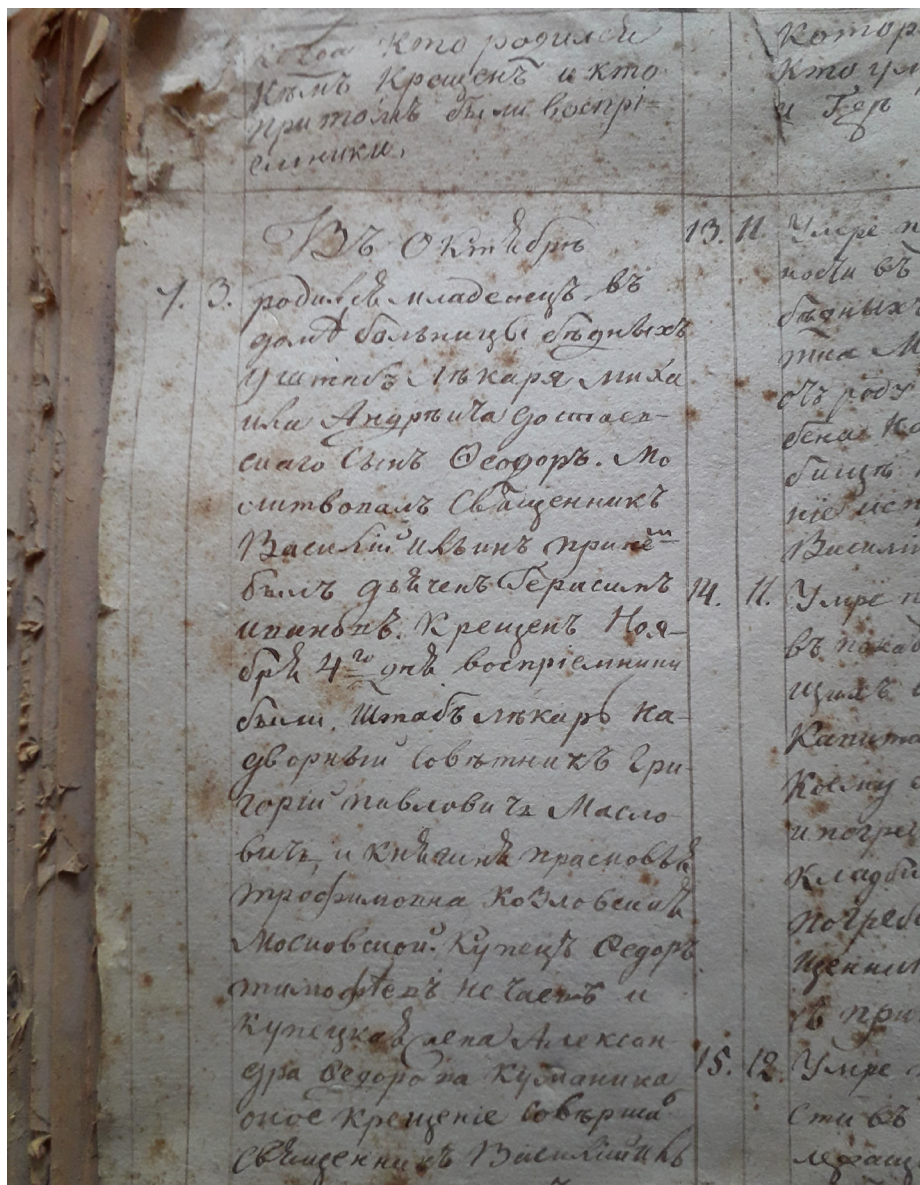 когда кто родился
кѣмъ крещенъ и кто
притомъ были воспрі=
емники.
Въ Октябрѣ
1. 3. родился младенецъ, въ
домѣ больницы бѣдныхъ
у штабъ лѣкаря Миха
ила Андрѣича Достаев-
скаго Сынъ Ѳеодоръ. Мо
литвовалъ Священникъ
Василій Ильинъ при нем
былъ дьяченъ Герасимъ
Ивановъ. Крещенъ Ноя-
бря 4го дня воспріемники
были. Штабъ лѣкарь на-
дворный Совѣтникъ Гри-
горій Павловичъ Масло
вичь, и Княгиня Прасковья
Трофимовна Козловская
Московской Купецъ Федоръ
Тимофѣевъ Нечаевъ и
Купецкая Алексан
дра Федорова Куманина
оное Крещеніе Совѣршал
Священникъ Василій Иль
Котор
Кто ум
и Гдѣ
13. 11. Умре
ности въ
бѣдныхъ
тна М
отъ роду
бена
бищѣ
ніе исп
Василі
14. 11. Умре
въ покоѣ
щихъ
Капита
Коему
и погре
кладби
погреб
щенни
при
15. 12. Умре
сти въ